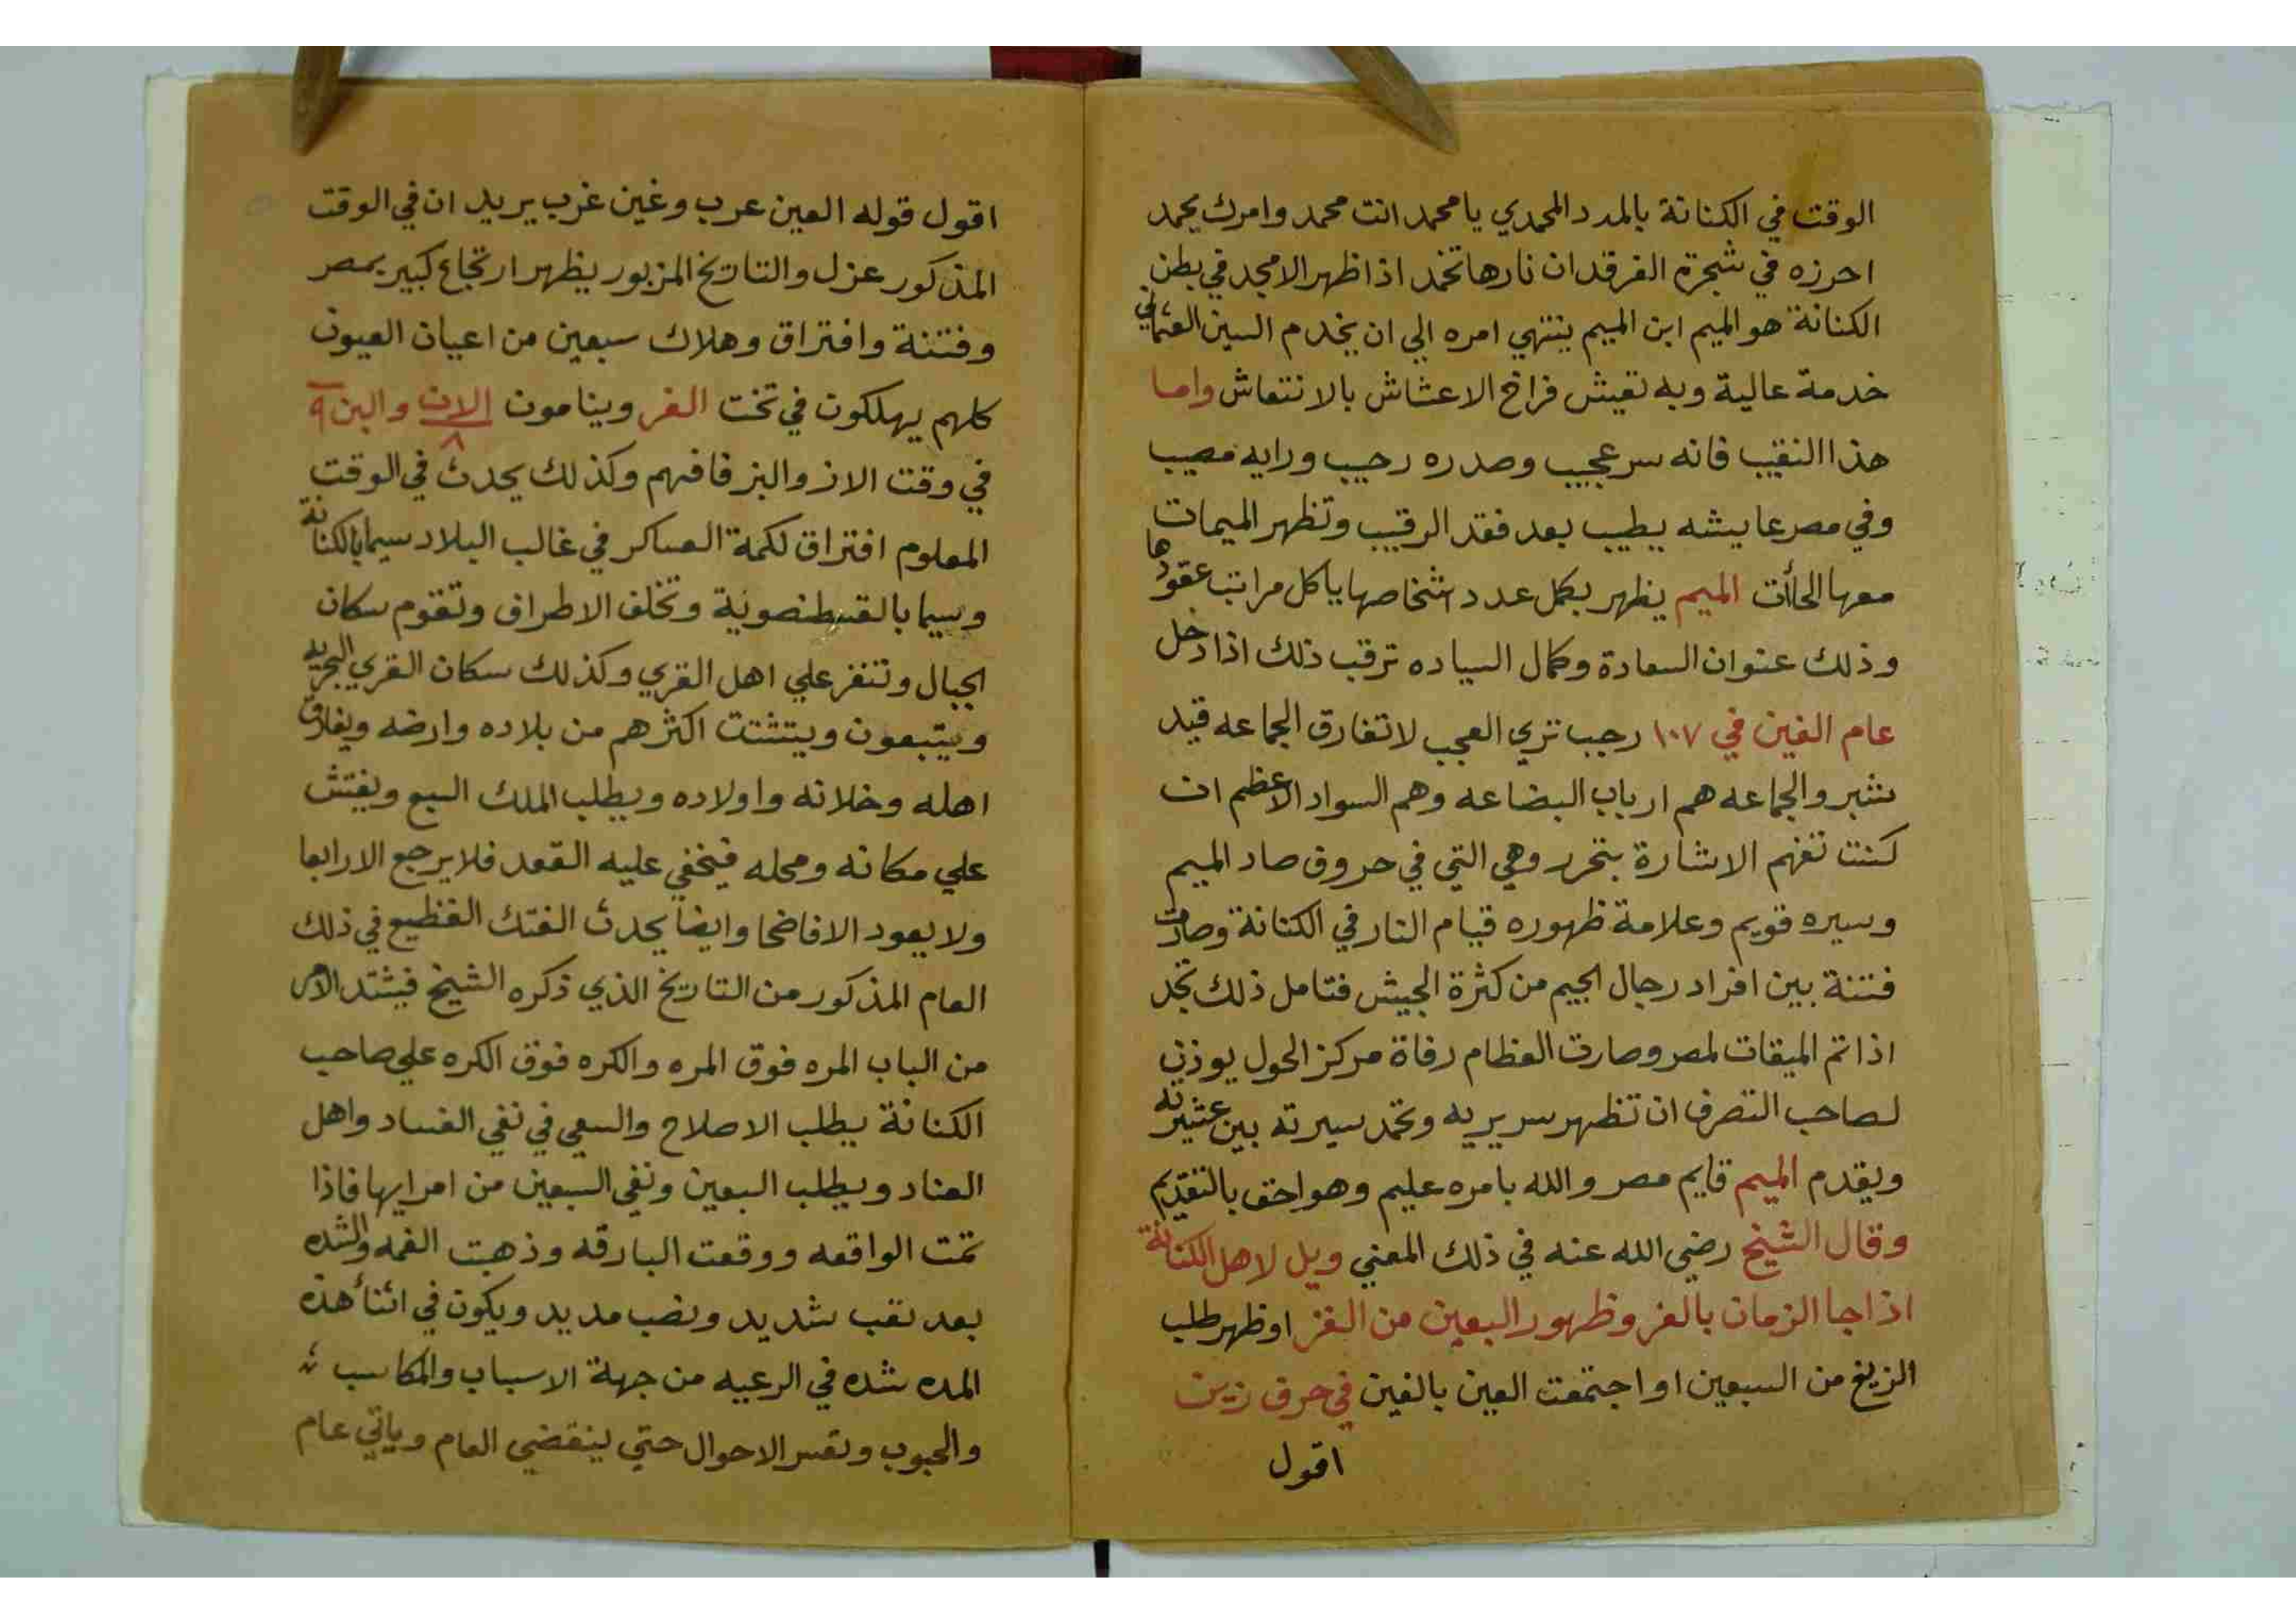 الوقت في الكنانة بالمدد المحمدي يا محمد انت محمد وامرك يحمد
احرزه في شجرة الفرقدان نارها تخمد اذا ظهر الامجد في بطن
الكنانة هو الميم ابن الميم ينتهي امره الي ان يخدم السين العثماني
خدمة عالية وبه تعيش فراخ الاعشاش بالانتعاش واما
هذا النقيب فانه سر عجيب وصدره رحيب ورايه مصيب
وفي مصر عايشه يطيب بعد فقد الرقيب وتظهر الميمات
معها الحاأت الميم يظهر بكمل عدد اشخاصها يا كل مراتب عقودها
وذلك عنوان السعادة وكمال السياده ترقب ذلك اذا دخل
عام الغين في ١٠٧ رجب تري العجب لا تفارق الجماعه قيد
شبر والجماعه هم ارباب البضاعه وهم السواد الاعظم ان
كنت تفهم الاشارة بتحرر وهي التي في حروف صاد الميم
وسيره قويم وعلامة ظهوره قيام النار في الكنانة وصارت
فتنة بين افراد رجال الجيم من كثرة الجيش فتامل ذلك تجد
اذا تم الميقات لمصر وصارت العظام رفاة مركز الحول يوذن
لصاحب التصرف ان تظهر سريريه وتحمد سيرته بين عشيرته
ويقدم الميم قايم مصر والله بامره عليم وهو احق بالتقديم
وقال الشيخ رضي الله عنه في ذلك المعني ويل لاهل الكنانة
اذا جا الزمان بالغر وظهور السبعين من الغز او ظهر طلب
الزيغ من السبعين او اجتمعت العين بالغين في حرف زين
اقول
اقول قوله العين عرب وغين غرب يريد ان في الوقت
المذكور عزل والتاريخ المزبور يظهر ارتجاع كبير بمصر
وفتنة وافتراق وهلاك سبعين من اعيان العيون
كلهم يهلكون في تخت الغر وينامون الان والبن ٩
٨
في وقت الاز والبز فافهم وكذلك يحدث في الوقت
المعلوم افتراق لكمة العساكر في غالب البلاد سيما بالكنانة
وسيما بالقسطنصونية وتخلف الاطراف وتقوم سكان
الجبال وتنفز علي اهل القري وكذلك سكان القري البحريه
ويتبعون ويتشتت اكثرهم من بلاده وارضه ويفارق
اهله وخلانه واولاده ويطلب الملك السبع ويفتش
علي مكانه ومحله فيخفي عليه القعد فلا يرجع الا رابعا
ولا يعود الا فاضحا وايضا يحدث الفتك الفظيع في ذلك
العام المذكور من التاريخ الذي ذكره الشيخ فيشتد الامر
من الباب المره فوق المره والكره فوق الكره علي صاحب
الكنانة يطلب الاصلاح والسعي في نفي الفساد واهل
العناد ويطلب السبعين ونفي السبعين من امرايها فاذا
تمت الواقعه ووقعت البارقه وذهبت الغمه والشده
بعد تعب شديد ونصب مديد ويكون في اثنأ هذه
المده شده في الرعيه من جهة الاسباب والمكاسب
والحبوب وتعسر الاحوال حتي لينقضي العام وياتي عام